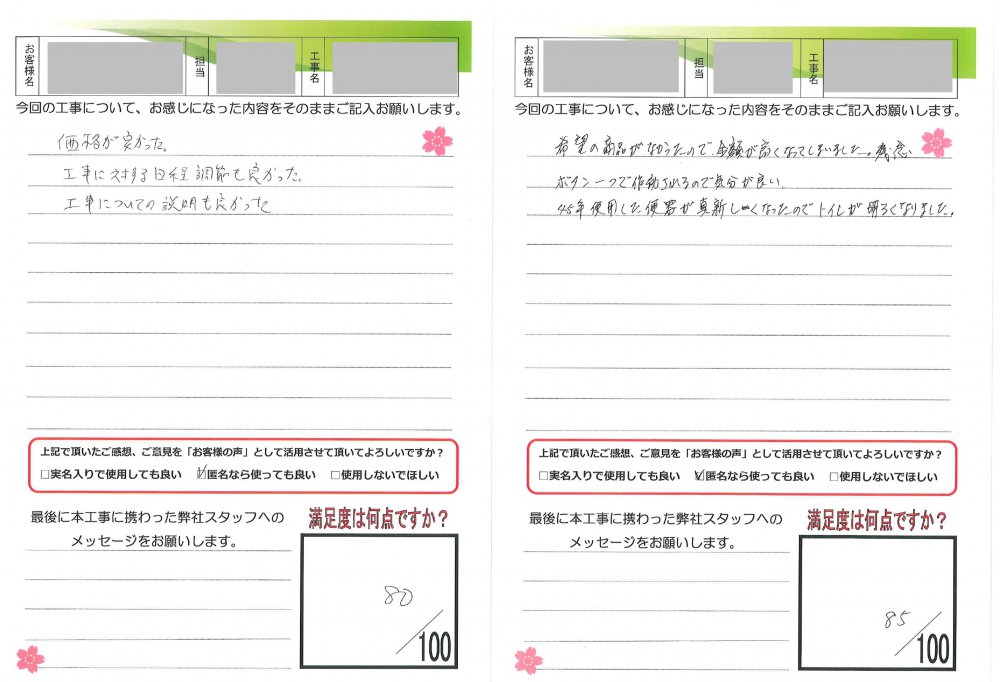 お客様名
担当
工事名
今回の工事について、お感じになった内容をそのままご記入お願いします。
価格が良かった。
工事に対する日程調節も良かった。
工事についての説明も良かった
上記で頂いたご感想、ご意見を「お客様の声」として活用させて頂いてよろしいですか?
□実名入りで使用しても良い ☑匿名なら使っても良い □使用しないでほしい
最後に本工事に携わった弊社スタッフへの
メッセージをお願いします。
満足度は何点ですか?
80
/100
お客様名
担当
工事名
今回の工事について、お感じになった内容をそのままご記入お願いします。
希望の商品がなかったので金額が高くなってしまいました。残念
ボタン一つで作動されるので気分が良い。
45年使用した便器が真新しくなったのでトイレが明るくなりました。
上記で頂いたご感想、ご意見を「お客様の声」として活用させて頂いてよろしいですか?
□実名入りで使用しても良い ☑匿名なら使っても良い □使用しないでほしい
最後に本工事に携わった弊社スタッフへの
メッセージをお願いします。
満足度は何点ですか?
85
/100